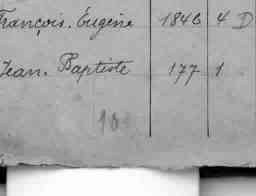 François. Eugène 1846 4 D
Jean. Baptiste 177 1